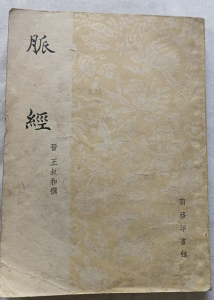 脈經
晉 王叔和撰
商務印書館